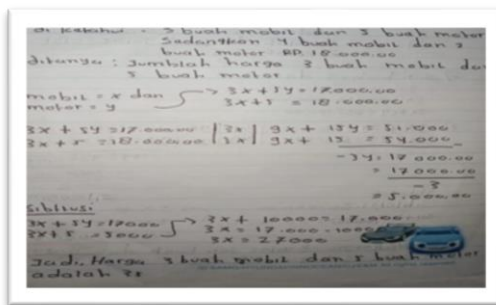 di ketahui : 3 buah mobil dan 5 buah motor
Sedangkan 4 buah mobil dan 3
buah motor RP. 18.000.00
ditanya : Jumblah harga 3 buah mobil da
5 buah motor
mobil = x dan
motor = y
3x + 5y = 17.000.00
3x + 5 = 18.000.00
3x + 5y = 17.000.00 | 3x | 9x + 15y = 51.000
3x + 5 = 18.000.00 | 3x | 9x + 15 = 54.000
- 3y = 17 000.00
= 17 000.00
-3
= 5.000.00
Siblitusi
3x + 5y = 17000
3x + 5 = 5000
3x + 10000 = 17.000
3x = 17.000 - 1000
3x = 27000
Jadi, Harga 3 buah mobil dan 5 buah motor
adalah